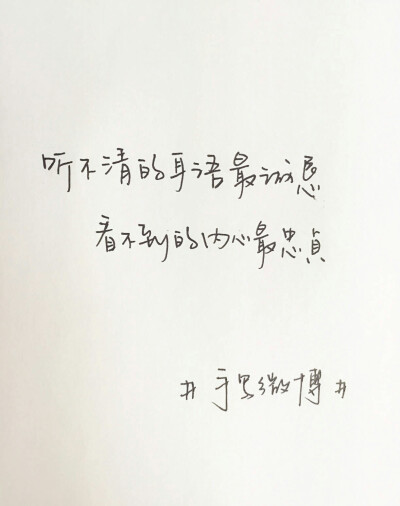 听不清的耳语最诚恳
看不到的内心最忠貞
#手写微博#